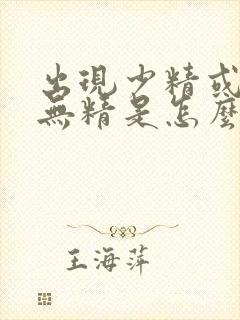 出現少精或
無精是怎麼
王海萍